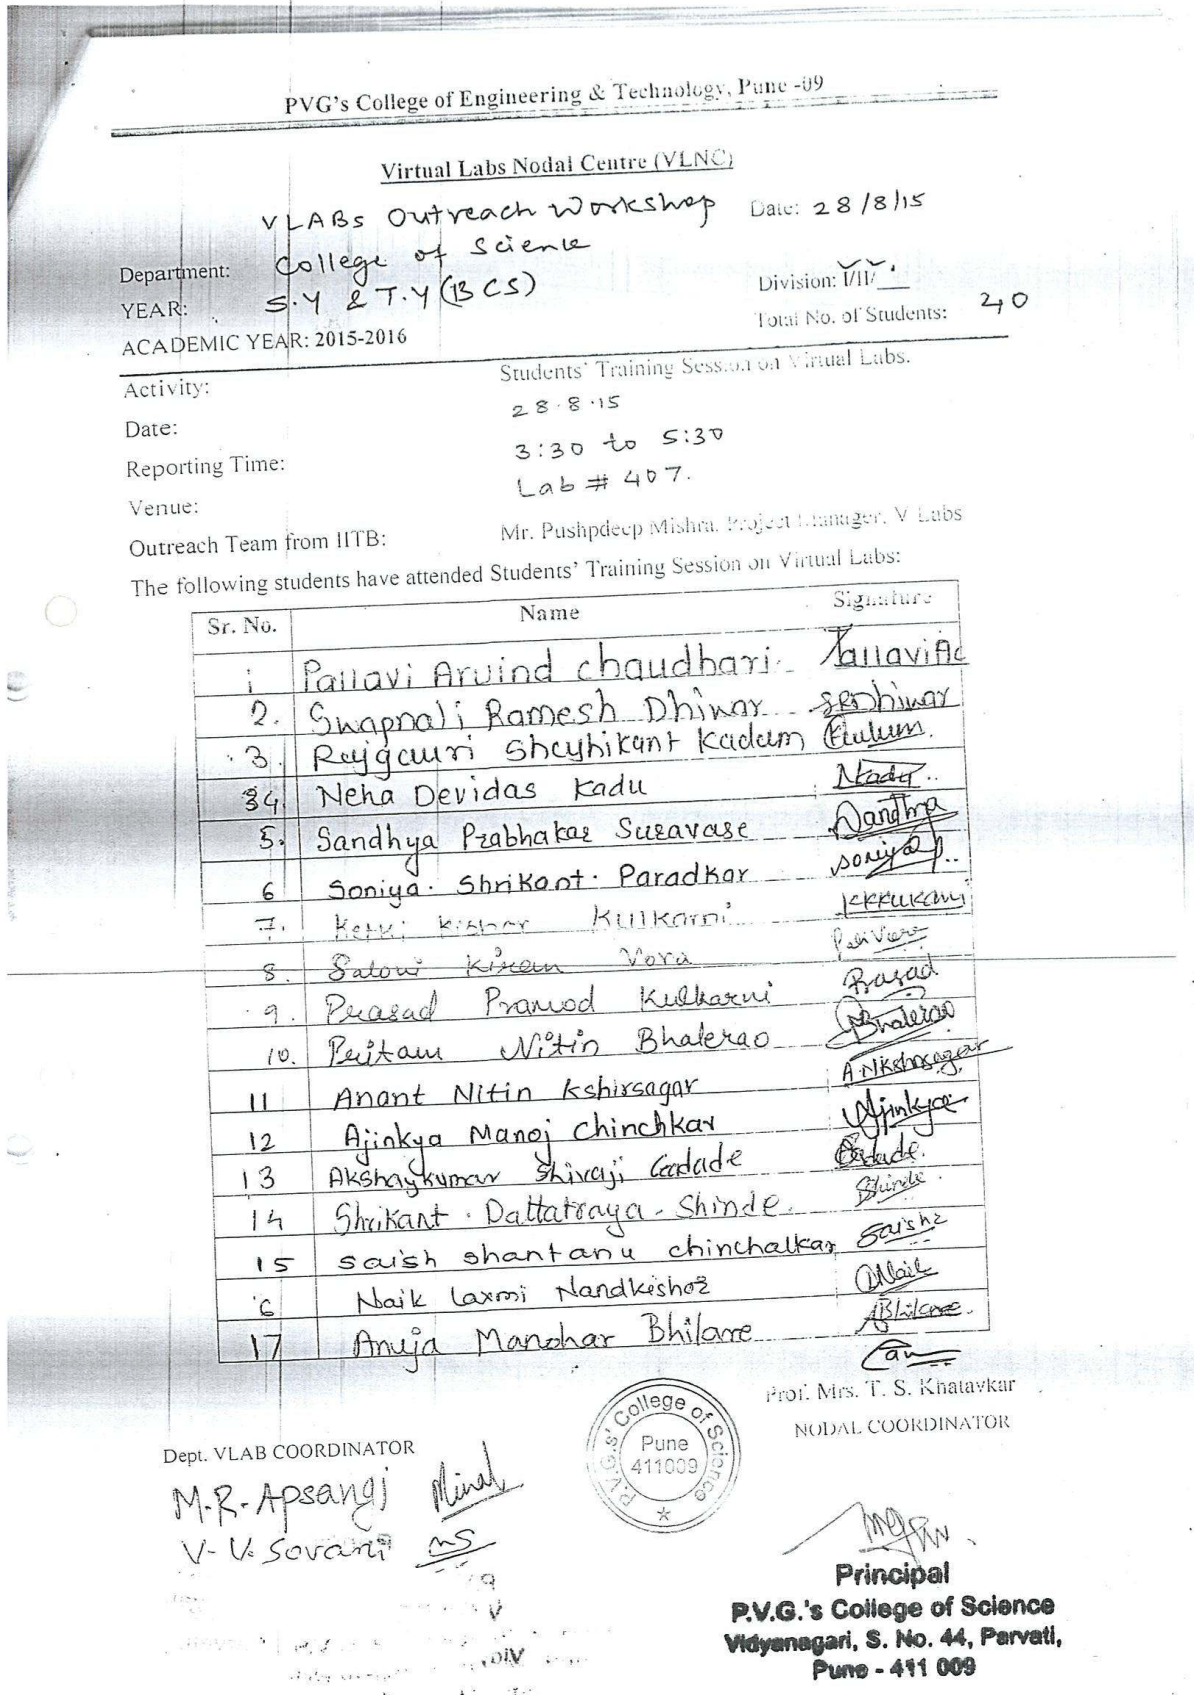 PVG's College of Engineering & Technology, Pune -09
Virtual Labs Nodal Centre (VLNC)
VLABs Outreach Workshop Date: 28/8/15
Department: College of Science
Division: I/II/
YEAR: S.Y & T.Y (BCS)
Total No. of Students: 40
ACADEMIC YEAR: 2015-2016
Activity: Students' Training Session on Virtual Labs.
Date: 28.8.15
Reporting Time: 3:30 to 5:30
Venue: Lab # 407.
Outreach Team from IITB: Mr. Pushpdeep Mishra, Project Manager, V Labs
The following students have attended Students' Training Session on Virtual Labs:
Sr. No. Name Signature
1 Pallavi Arvind chaudhari. PallaviAC
2. Swapnali Ramesh Dhiwar SRDhiwar
3. Rajgauri Shashikant Kadam
34. Neha Devidas Kadu NKadu..
5. Sandhya Prabhakar Suravase Sandhya
6 Soniya. Shrikant. Paradkar soniya p..
7. Ketki Kishor Kulkarni KKKulkarni
8. Saloni Kiran Vora
9. Prasad Pramod Kulkarni Prasad
10. Pritam Nitin Bhalerao Bhalerao
11 Anant Nitin Kshirsagar A.NKshirsagar
12 Ajinkya Manoj Chinchkar Ajinkya
13 Akshaykumar Shivaji Gadade Gadade.
14 Shrikant. Dattatraya. Shinde. Shinde.
15 saish shantanu chinchalkar saishz
6 Naik Laxmi Nandkishor Naik
17 Anuja Manohar Bhilare ABhilare.
Prof. Mrs. T. S. Khatavkar
NODAL COORDINATOR
Dept. VLAB COORDINATOR
P.V.G.s' College of Science
Pune
411009
M.R.Apsangi Minal
V. V. Sovani
Principal
P.V.G.'s College of Science
Vidyanagari, S. No. 44, Parvati,
Pune - 411 009